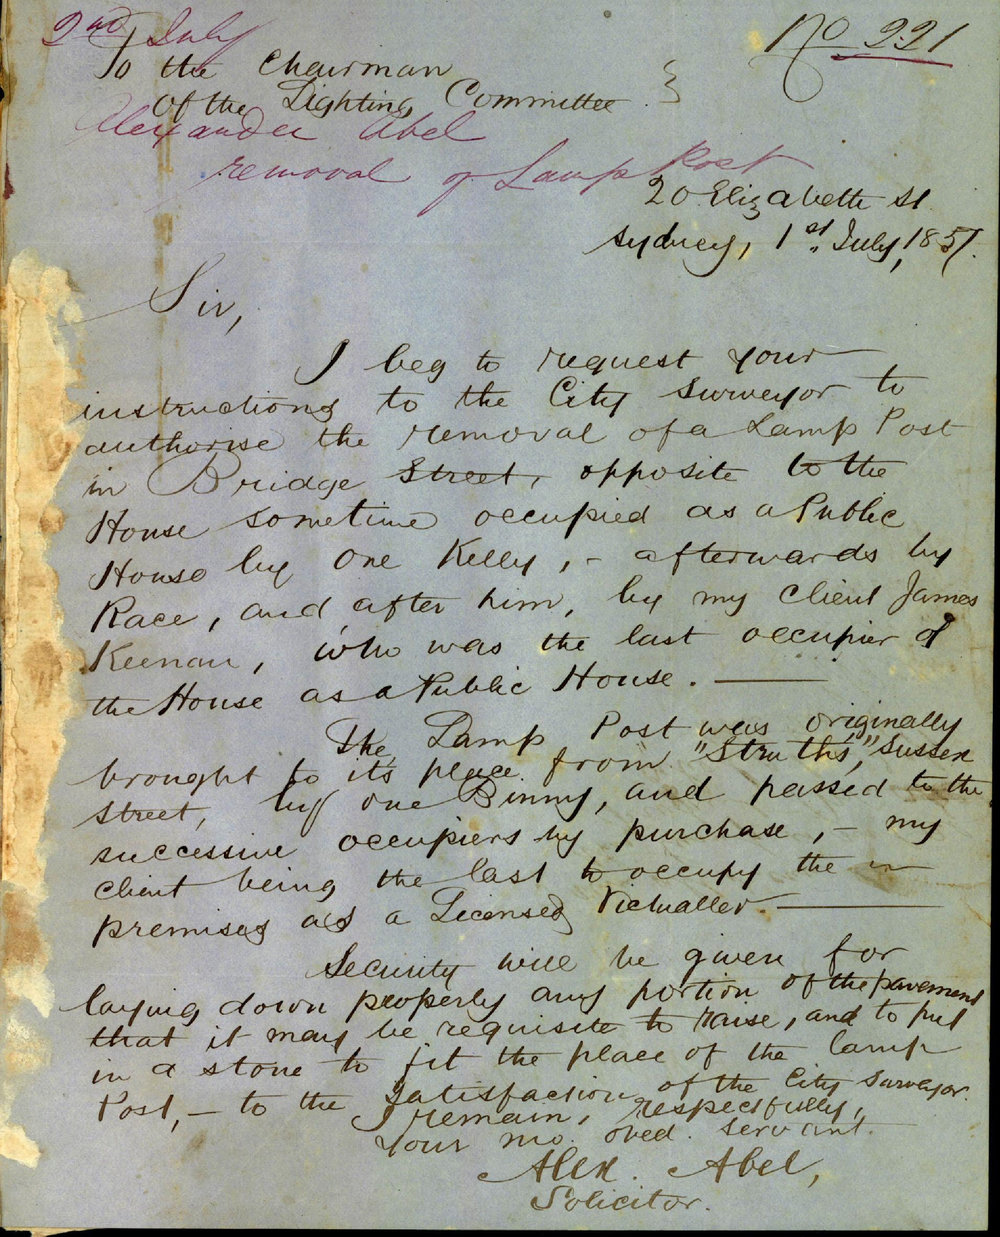 2nd July
No 221
To the Chairman
Of the Lighting Committee
Alexander Abel
removal of Lamp Post
20 Elizabeth St.
Sydney, 1st July, 1857.
Sir,
I beg to request your
instructions to the City Surveyor to
authorise the removal of a Lamp Post
in Bridge Street, opposite to the
House sometime occupied as a Public
House by one Kelly, - afterwards by
Race, and after him, by my client James
Keenan, who was the last occupier of
the House as a Public House. ———
The Lamp Post was originally
brought to its place from "Struth's," Sussex
Street, by one Binny, and passed to the
successive occupiers by purchase, - my
client being the last to occupy the
premises as a Licensed Victualler. ———
Security will be given for
laying down properly any portion of the pavement
that it may be requisite to raise, and to put
in a stone to fit the place of the Lamp
Post, - to the Satisfaction of the City Surveyor.
I remain, respectfully,
Your mo. obed. servant.
Alex. Abel,
Solicitor.